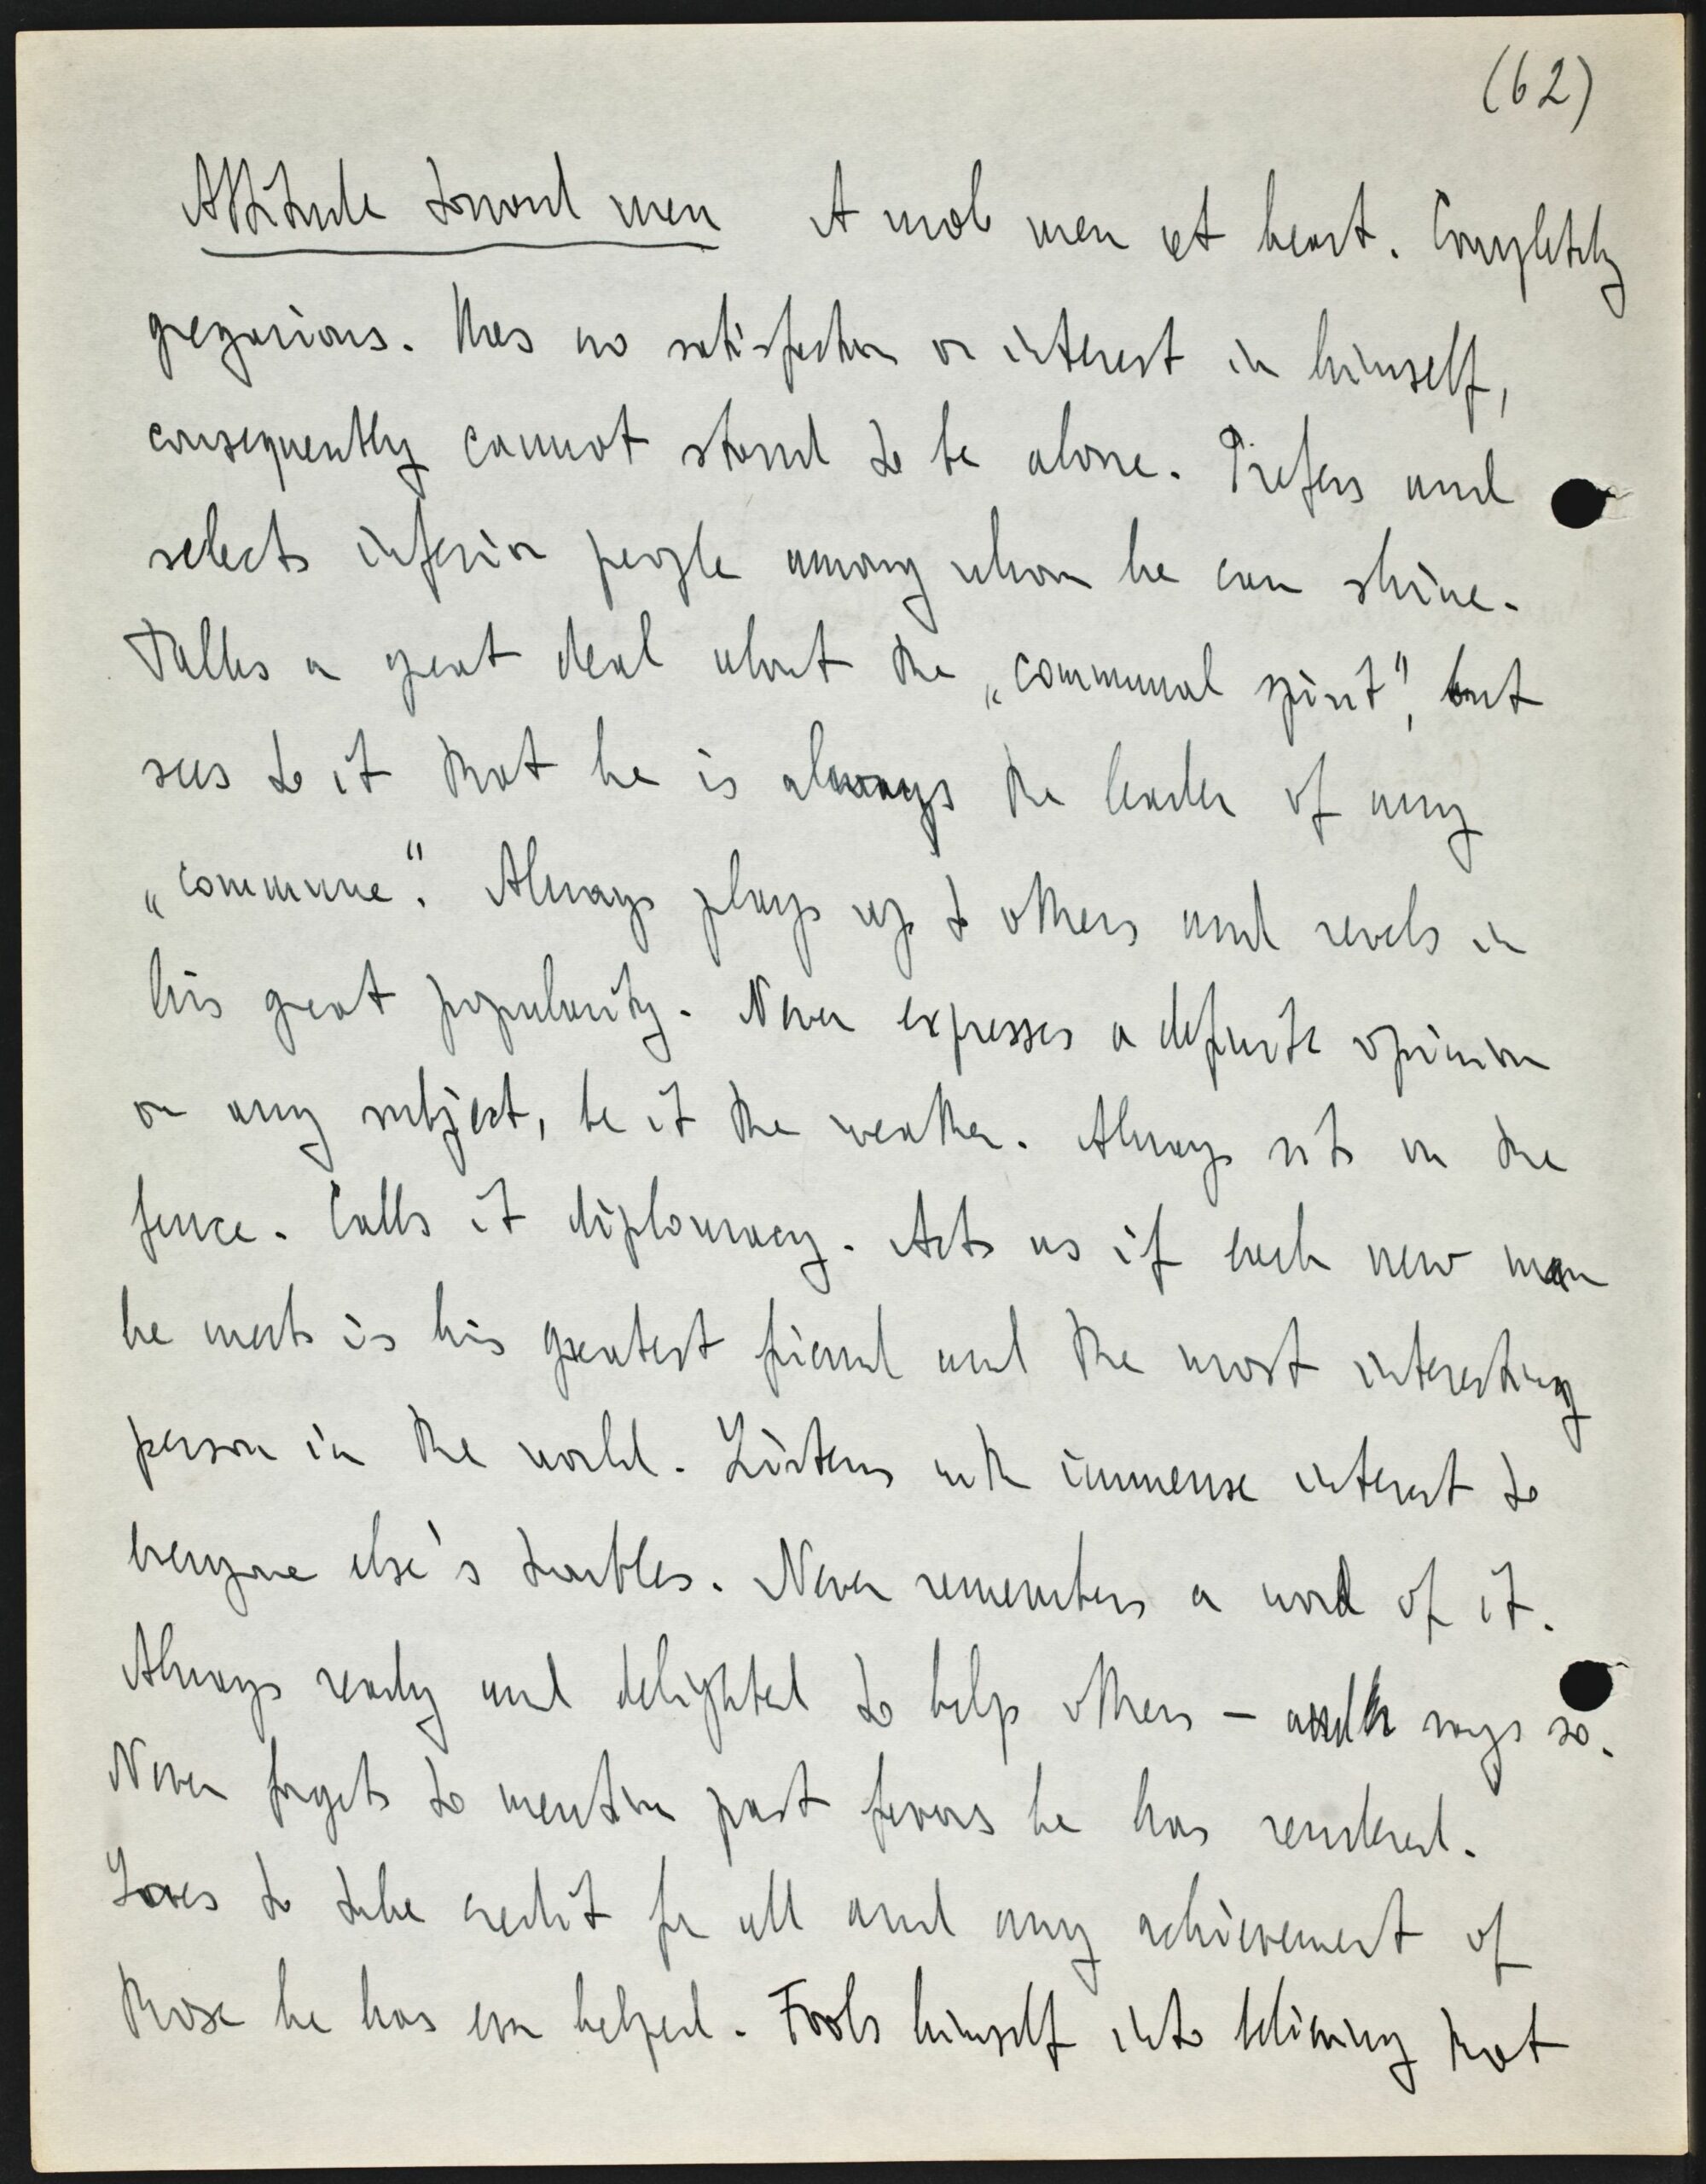 (62)
Attitude toward men A mob man at heart. Completely
gregarious. Has no satisfaction or interest in himself,
consequently cannot stand to be alone. Prefers and
selects inferior people among whom he can shine.
Talks a great deal about the „communal spirit", but
sees to it that he is always the leader of any
„commune". Always plays up to others and revels in
his great popularity. Never expresses a definite opinion
on any subject, be it the weather. Always sits on the
fence. Calls it diplomacy. Acts as if each new man
he meets is his greatest friend and the most interesting
person in the world. Listens with immense interest to
everyone else's troubles. Never remembers a word of it.
Always ready and delighted to help others — and says so.
Never forgets to mention past favors he has rendered.
Loves to take credit for all and any achievement of
those he has ever helped. Fools himself into believing that